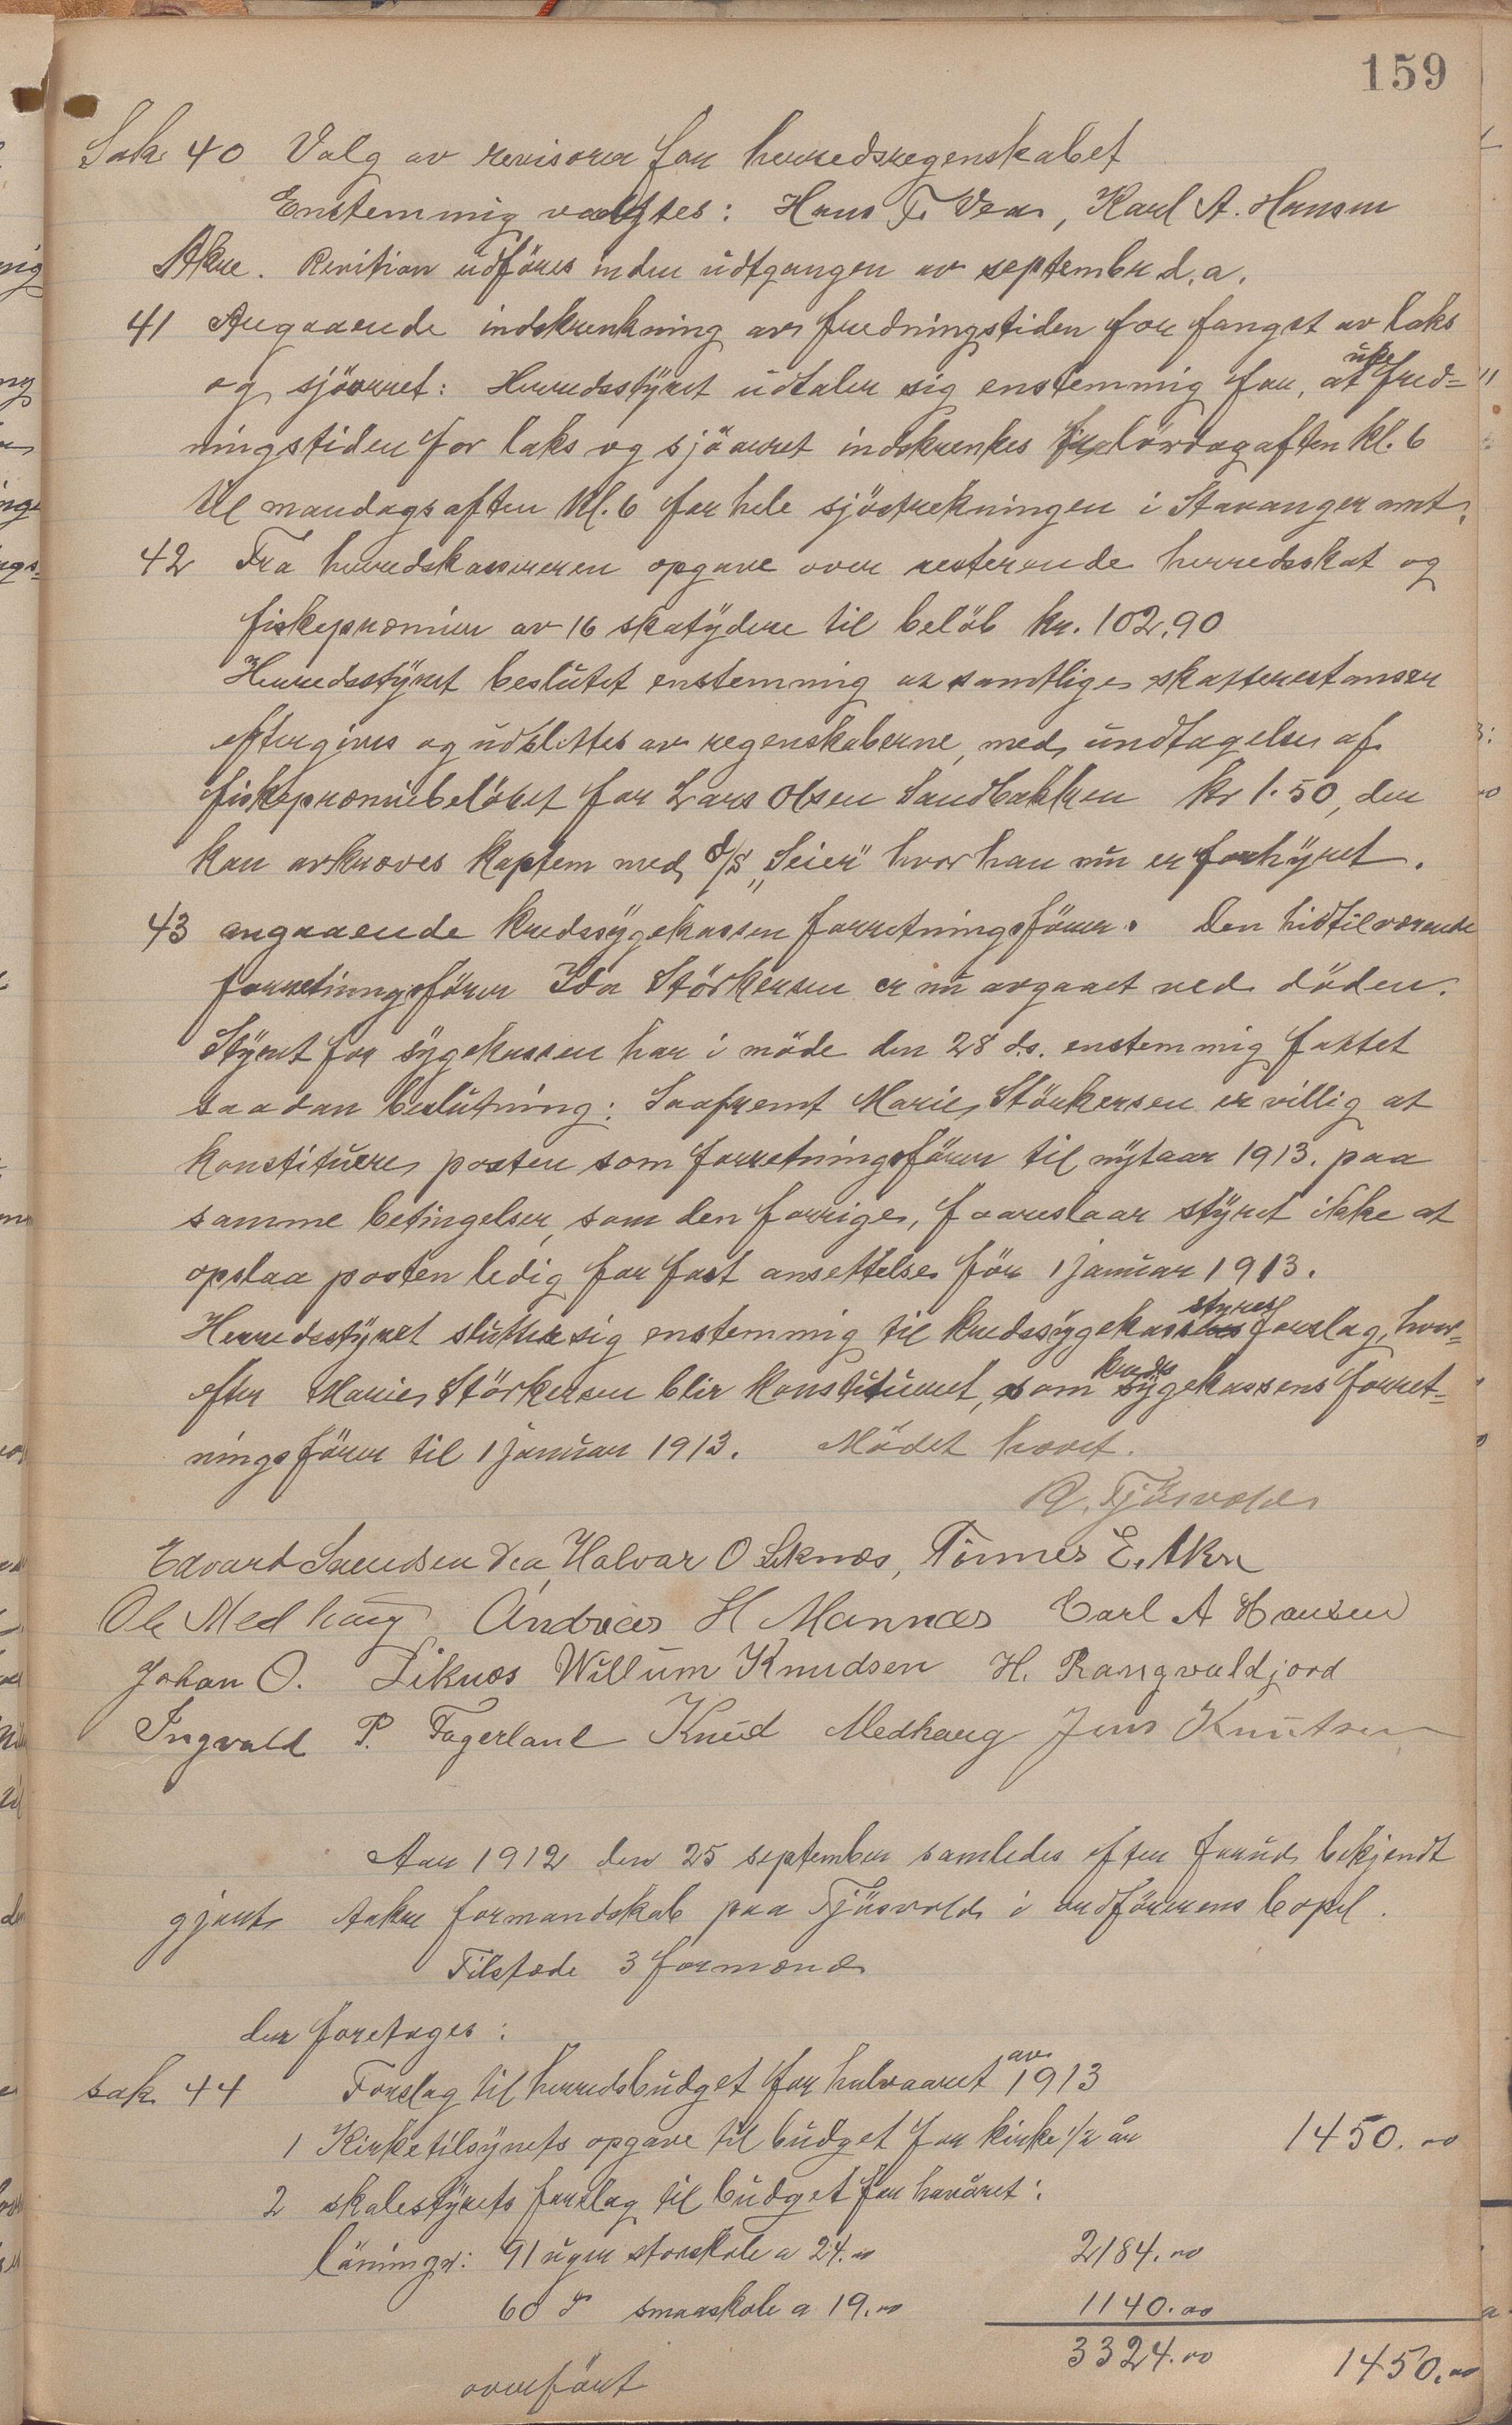 159
Sak 40 Valg av revisorer for herredsregenskabet
Enstemmig valgtes: Hans F. Vea, Karl A. Hansen
Akre. Revision udföres inden udtgangen av september d.a.
41 Angaaende indskrenkning av fredningstiden for fangst av laks
og sjöörret: Herredsstyret udtaler sig enstemmig for, at ukefred-
ningstiden for laks og sjöörret indskrenkes fra lördag aften kl. 6
til mandags aften kl. 6 for hele sjöstrekningen i Stavanger amt.
42 Fra herredskassereren opgave over resterende herredsskat og
fiskepræmier av 16 skatydere til belöb kr. 102.90
Herredsstyret beslutet enstemmig at samtlige skatterestanser
eftergives og udslettes av regenskaberne, med undtagelse af
fiskepræmiebelöbet for Lars Olsen Sandbakken kr 1.50, der
kan avkræves kaptein med d/s "Seier" hvor han nu er forhyret.
43 angaaende kredssygekassen forretningsförer. Den hidtilværende
forretningsförer Ida Störkersen er nu avgaaet ved döden.
Styret for sygekassen har i möde den 28 ds. enstemmig fattet
saadan beslutning: Saafremt Marie Störkersen er villig at
konstituere posten som forretningsförer til nytaar 1913. paa
samme betingelser, som den forrige, foareslaar styret ikke at
opslaa posten ledig for fast ansettelse för 1 januar 1913.
Herredsstyret slutter sig enstemmig til kredssygekasse styrets forslag, hvor-
efter Marie Störkersen blir konstitueret, som kreds sygekassens forret-
ningsförer til 1 januar 1913. Mödet hævet.
R. Tjösvold
Edvard Svendsen Vea, Halvar O Liknæs, Tönnes E. Akre
Ole Medhaug Andreas H Mannæs Carl A Hansen
Johan O. Liknæs Willum Knudsen H. Rangvaldjord
Ingvald P. Fagerland Knud Medhaug Jens Knutsen
Aar 1912 den 25 september samledes efter forud bekjendt
gjort Aakre formandskab paa Tjösvold i ordförerens bopel.
Tilstede 3 formænd
der foretages:
sak 44 Forslag til herredsbudget for halvaaret av 1913
1 Kirketilsynets opgave til budget for kirke 1/2 år 1450.00
2 skolestyrets forslag til budget for havåret:
löninger: 91 uger storskole a 24.00 2184.00
60 d° smaaskole a 19.00 1140.00
3324.00 1450.00
overfört